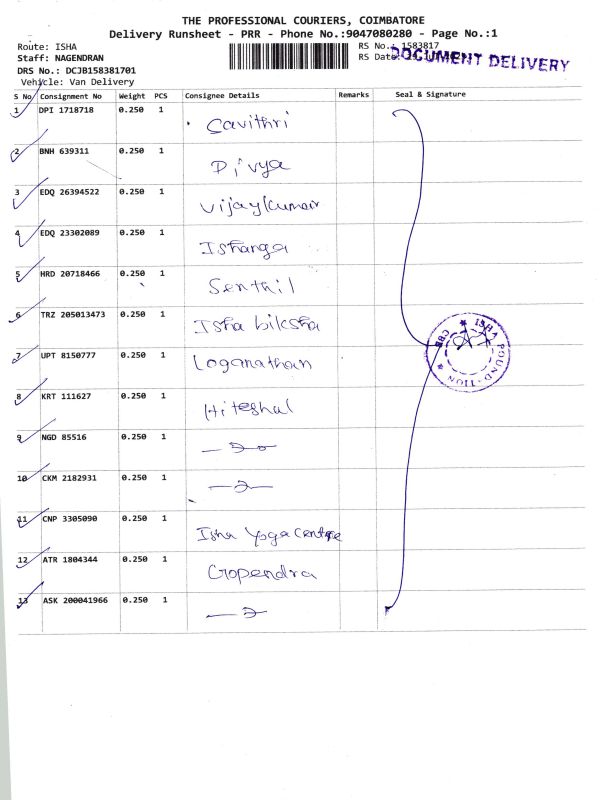 THE PROFESSIONAL COURIERS, COIMBATORE
Delivery Runsheet - PRR - Phone No.:9047080280 - Page No.:1
Route: ISHA
Staff: NAGENDRAN
DRS No.: DCJB158381701
Vehicle: Van Delivery
RS No.: 1583817
RS Date:
DOCUMENT DELIVERY
S No Consignment No Weight PCS Consignee Details Remarks Seal & Signature
1 DPI 1718718 0.250 1 Cavithri
2 BNH 639311 0.250 1 Divya
3 EDQ 26394522 0.250 1 Vijaykumar
4 EDQ 23302089 0.250 1 Ishanga
5 HRD 20718466 0.250 1 Senthil
6 TRZ 205013473 0.250 1 Isha biksha
7 UPT 8150777 0.250 1 Loganathan
8 KRT 111627 0.250 1 Hiteshal
9 NGD 85516 0.250 1
10 CKM 2182931 0.250 1
11 CNP 3305090 0.250 1 Isha Yoga Centre
12 ATR 1804344 0.250 1 Gopendra
13 ASK 200041966 0.250 1
ISHA FOUNDATION
CBE